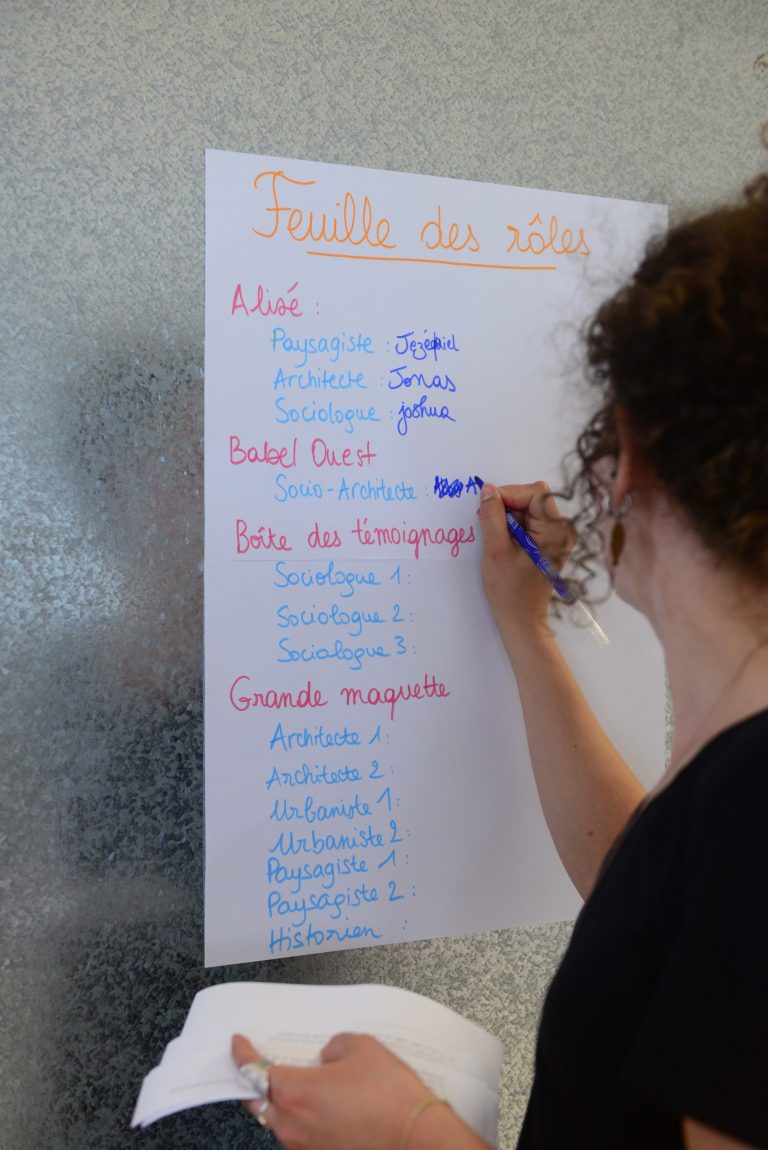 Feuille des rôles
Alizé :
Paysagiste : Jezékiel
Architecte : Jonas
Sociologue : joshua
Babel Ouest
Socio-Architecte : A
Boîte des témoignages
Sociologue 1 :
Sociologue 2 :
Sociologue 3 :
Grande maquette
Architecte 1 :
Architecte 2 :
Urbaniste 1 :
Urbaniste 2 :
Paysagiste 1 :
Paysagiste 2 :
Historien :